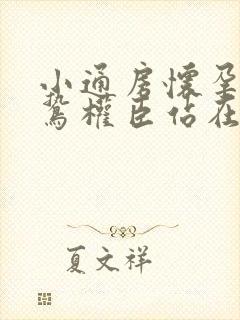 小通房懷孕
鷙權臣佔在
夏文祥